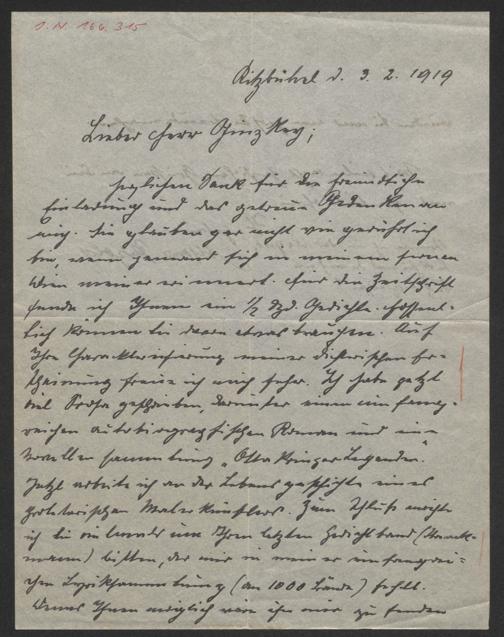 J. N. 166.315
Kitzbühel d. 3. 2. 1919
Lieber Herr Ginzkey,
herzlichen Dank für die freundliche
Einladung und das getreue Gedenken an
mich. Sie glauben gar nicht wie gerührt ich
bin, wenn jemand sich in meinem fernen
Wien meiner erinnert. Für die Zeitschrift
sende ich Ihnen ein ½ Dzd. Gedichte. Hoffent-
lich können Sie davon etwas brauchen. Auf
Ihre Charakterisierung meiner dichterischen Er-
scheinung freue ich mich sehr. Ich habe jetzt
viel Prosa geschrieben, darunter einen umfang-
reichen autobiographischen Roman und eine
Novellensammlung „Ottakringer Legenden".
Jetzt arbeite ich an der Lebensgeschichte eines
proletarischen Malerkünstlers. Zum Schluß möchte
ich Sie um Ihren letzten Gedichtband
bitten, der mir in meiner umfangrei-
chen Lyriksammlung (an 1000 Bände) fehlt.
Wenns Ihnen möglich wäre ihn mir zu senden